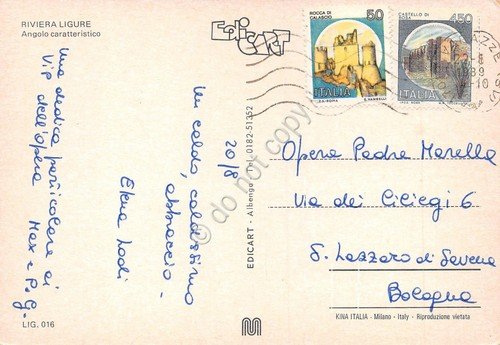 RIVIERA LIGURE
Angolo caratteristico
Edicart
ROCCA DI
CALASCIO
50
ITALIA
CASTELLO DI
450
ITALIA
Una dedica particolare ai
Vip dell'opera
Max e P.G.
Un caldo, caldissimo
abbraccio.
Elena Lodi
20/8
EDICART - Albenga - Tel. 0182-51352
Opera Padre Marella
Via dei Ciliegi 6
S. Lazzaro di Savena
Bologna
KINA ITALIA - Milano - Italy - Riproduzione vietata
LIG. 016
do not copy